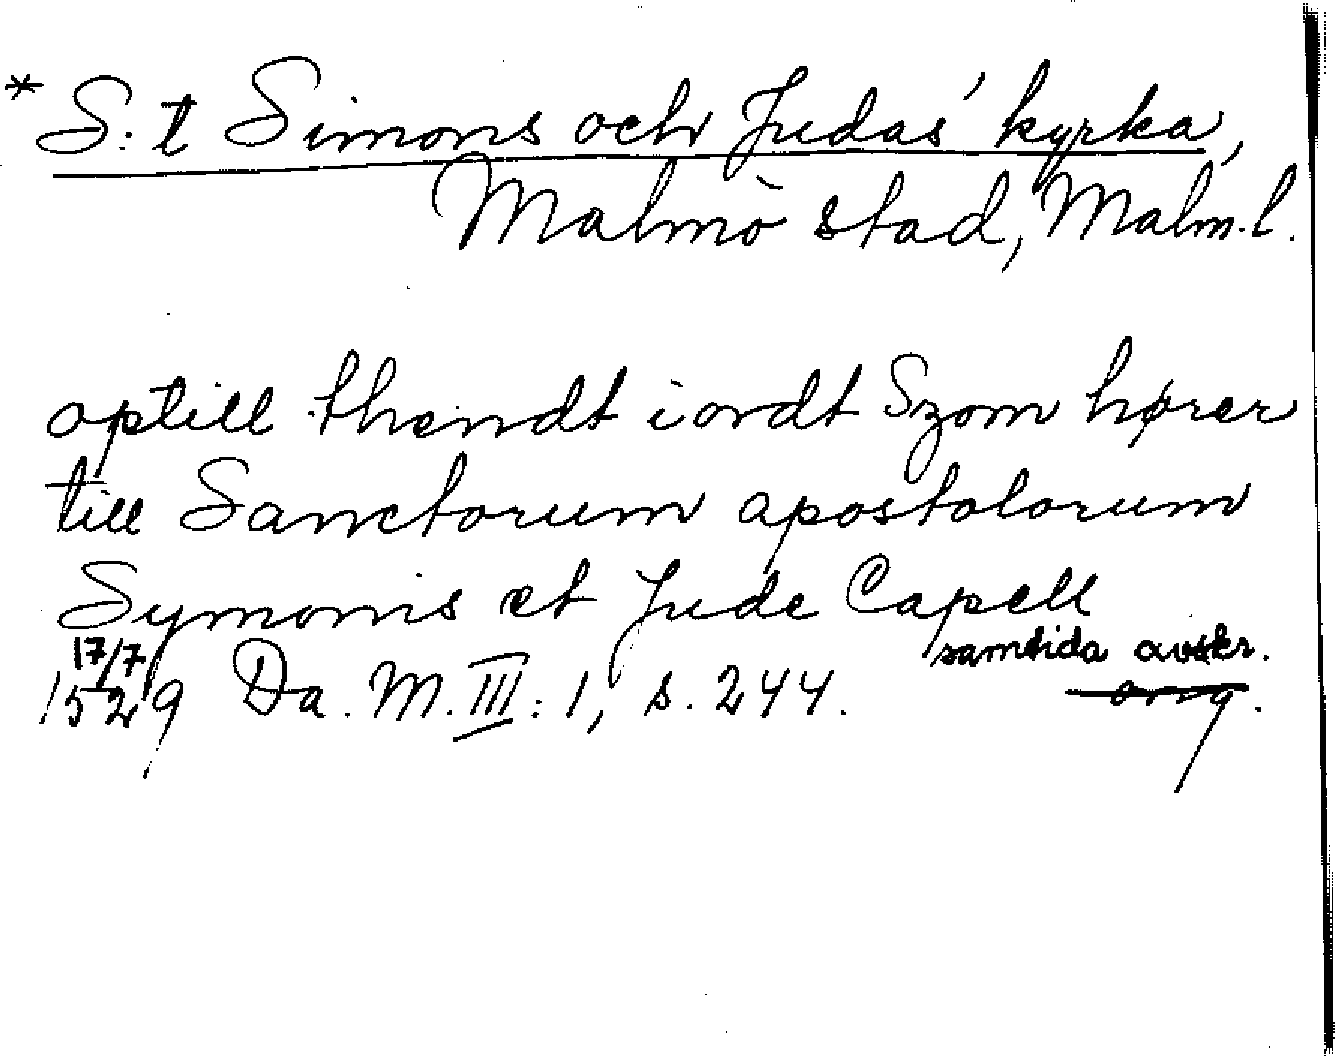 * S:t Simons och Judas' kyrka,
Malmö stad, Malm.l.
optill thendt iordt Szom hører
till Sanctorum apostolorum
Symonis et Jude Capell
17/7 samtida avskr.
1529 Da. M. III: 1, s. 244. orig.